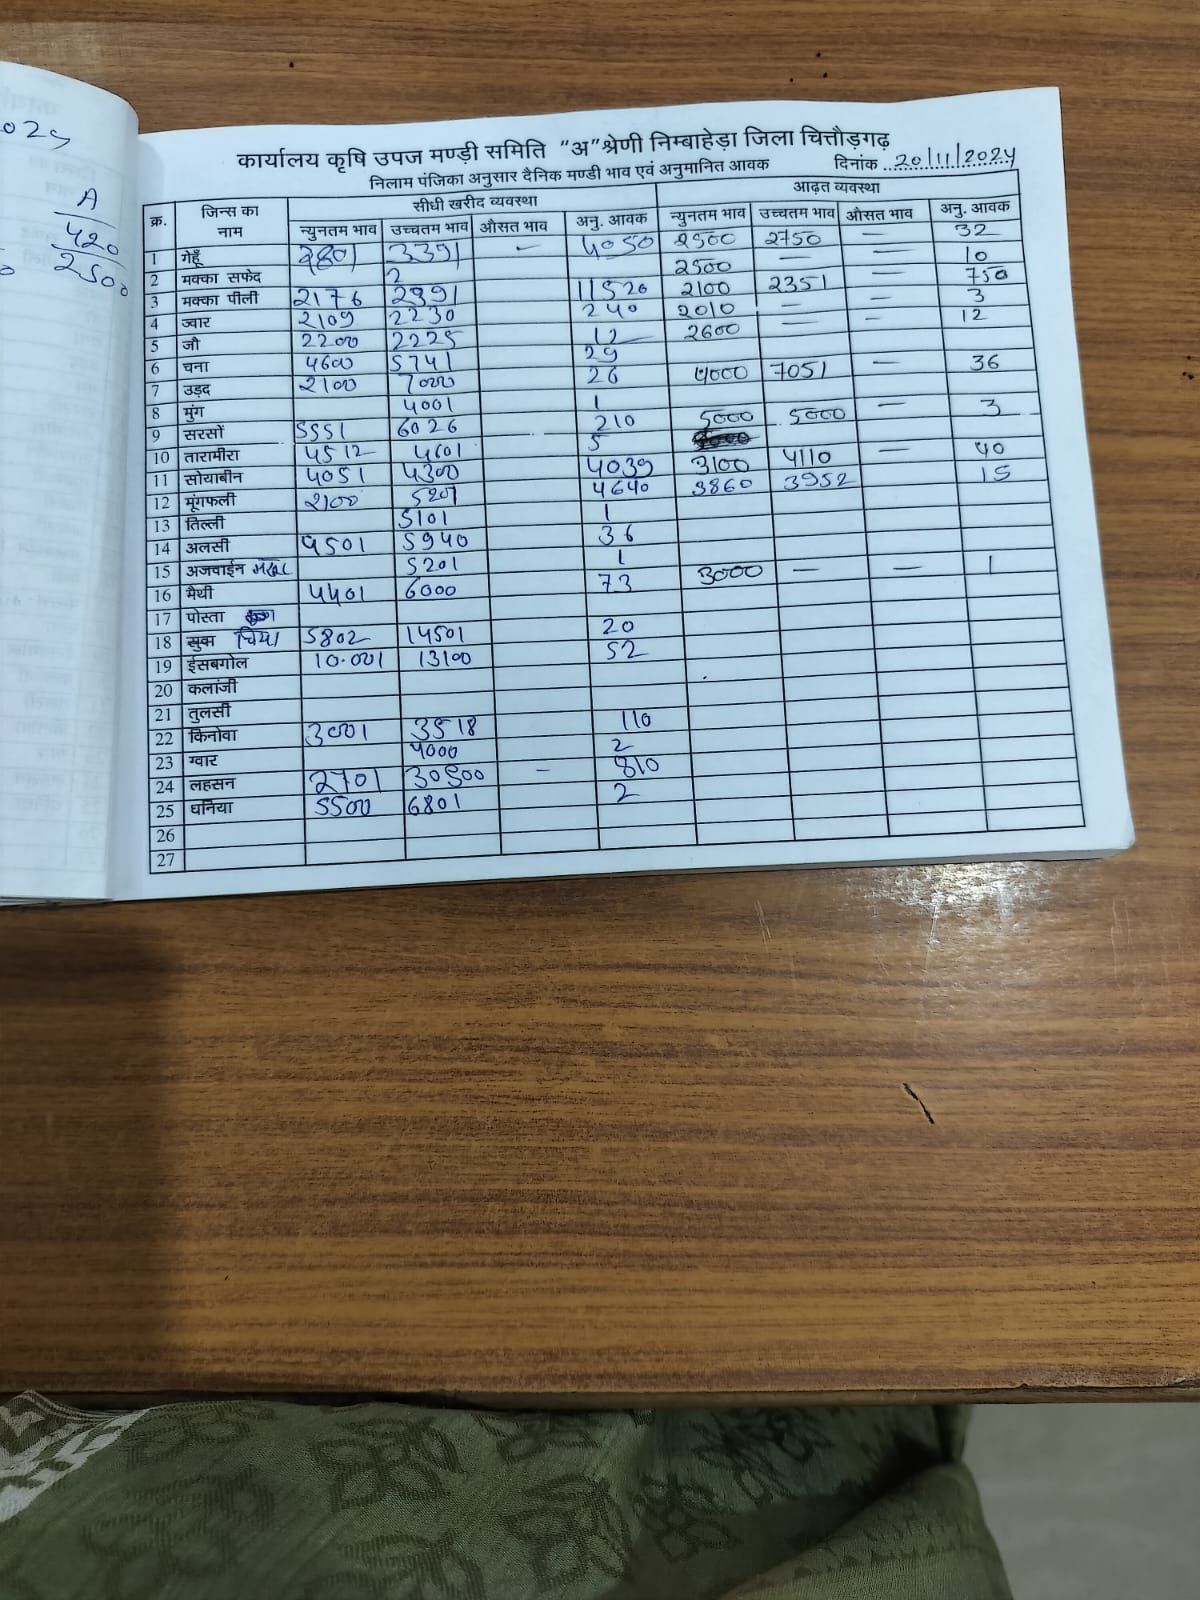 कार्यालय कृषि उपज मण्ड़ी समिति "अ"श्रेणी निम्बाहेड़ा जिला चित्तौड़गढ़
निलाम पंजिका अनुसार दैनिक मण्डी भाव एवं अनुमानित आवक दिनांक 20/11/2024
क्र. जिन्स का नाम सीधी खरीद व्यवस्था आढ़त व्यवस्था
न्युनतम भाव उच्चतम भाव औसत भाव अनु. आवक न्युनतम भाव उच्चतम भाव औसत भाव अनु. आवक
1 गेहूँ 2801 3391 - 4050 2500 2750 — 32
2 मक्का सफेद 2500 — — 10
3 मक्का पीली 2176 11520 2100 2351 — 750
4 ज्वार 2109 2230 240 2010 — — 3
5 जौ 2200 2225 12 2600 — — 12
6 चना 4600 5741 29
7 उड़द 2100 7000 26 4000 7051 — 36
8 मुंग 4001 1
9 सरसों 5551 6026 210 5000 5000 — 3
10 तारामीरा 4512 4601 5
11 सोयाबीन 4051 4300 4039 3100 4110 — 40
12 मूंगफली 2100 5201 4640 3860 3952 15
13 तिल्ली 5101 1
14 अलसी 4501 5940 36
15 अजवाईन 5201 1
16 मैथी 4401 6000 73 3000 — — 1
17 पोस्ता
18 सुवा चिया 5802 14501 20
19 ईसबगोल 10.001 13100 52
20 कलांजी
21 तुलसी
22 किनोवा 3001 3518 110
23 ग्वार 4000 2
24 लहसन 2701 30500 - 810
25 धनिया 5500 6801 2
26
27
A
420
2500